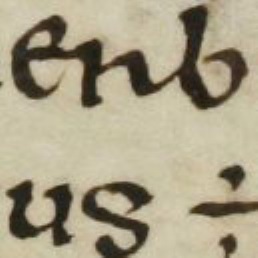 enb
us ÷